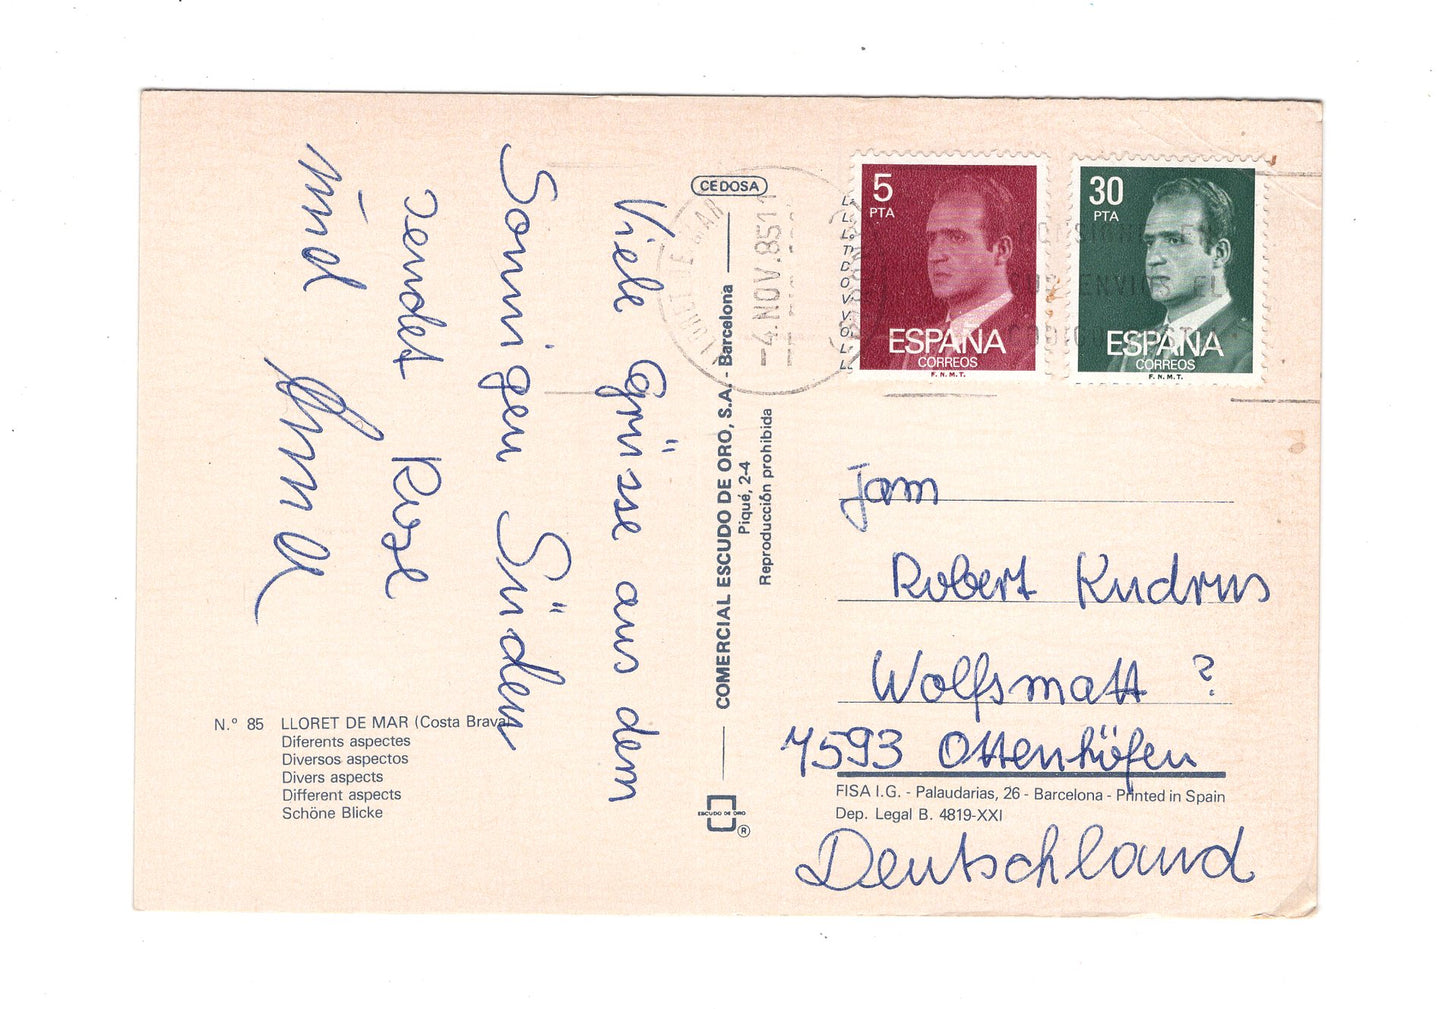 Viele Grüsse aus dem
Sonnigen Süden
sendet Rosl
und
CEDOSA
COMERCIAL ESCUDO DE ORO, S.A. - Barcelona
Piqué, 2-4
Reproducción prohibida
ESCUDO DE ORO
®
N.º 85 LLORET DE MAR (Costa Brava)
Diferents aspectes
Diversos aspectos
Divers aspects
Different aspects
Schöne Blicke
LLORET DE MAR
-4.NOV.85
5
PTA
ESPAÑA
CORREOS
F.N.M.T.
30
PTA
ESPAÑA
CORREOS
F.N.M.T.
ENVIUS EL
Fam
Robert Kudrus
Wolfsmatt ?
7593 Ottenhöfen
FISA I.G. - Palaudarias, 26 - Barcelona - Printed in Spain
Dep. Legal B. 4819-XXI
Deutschland